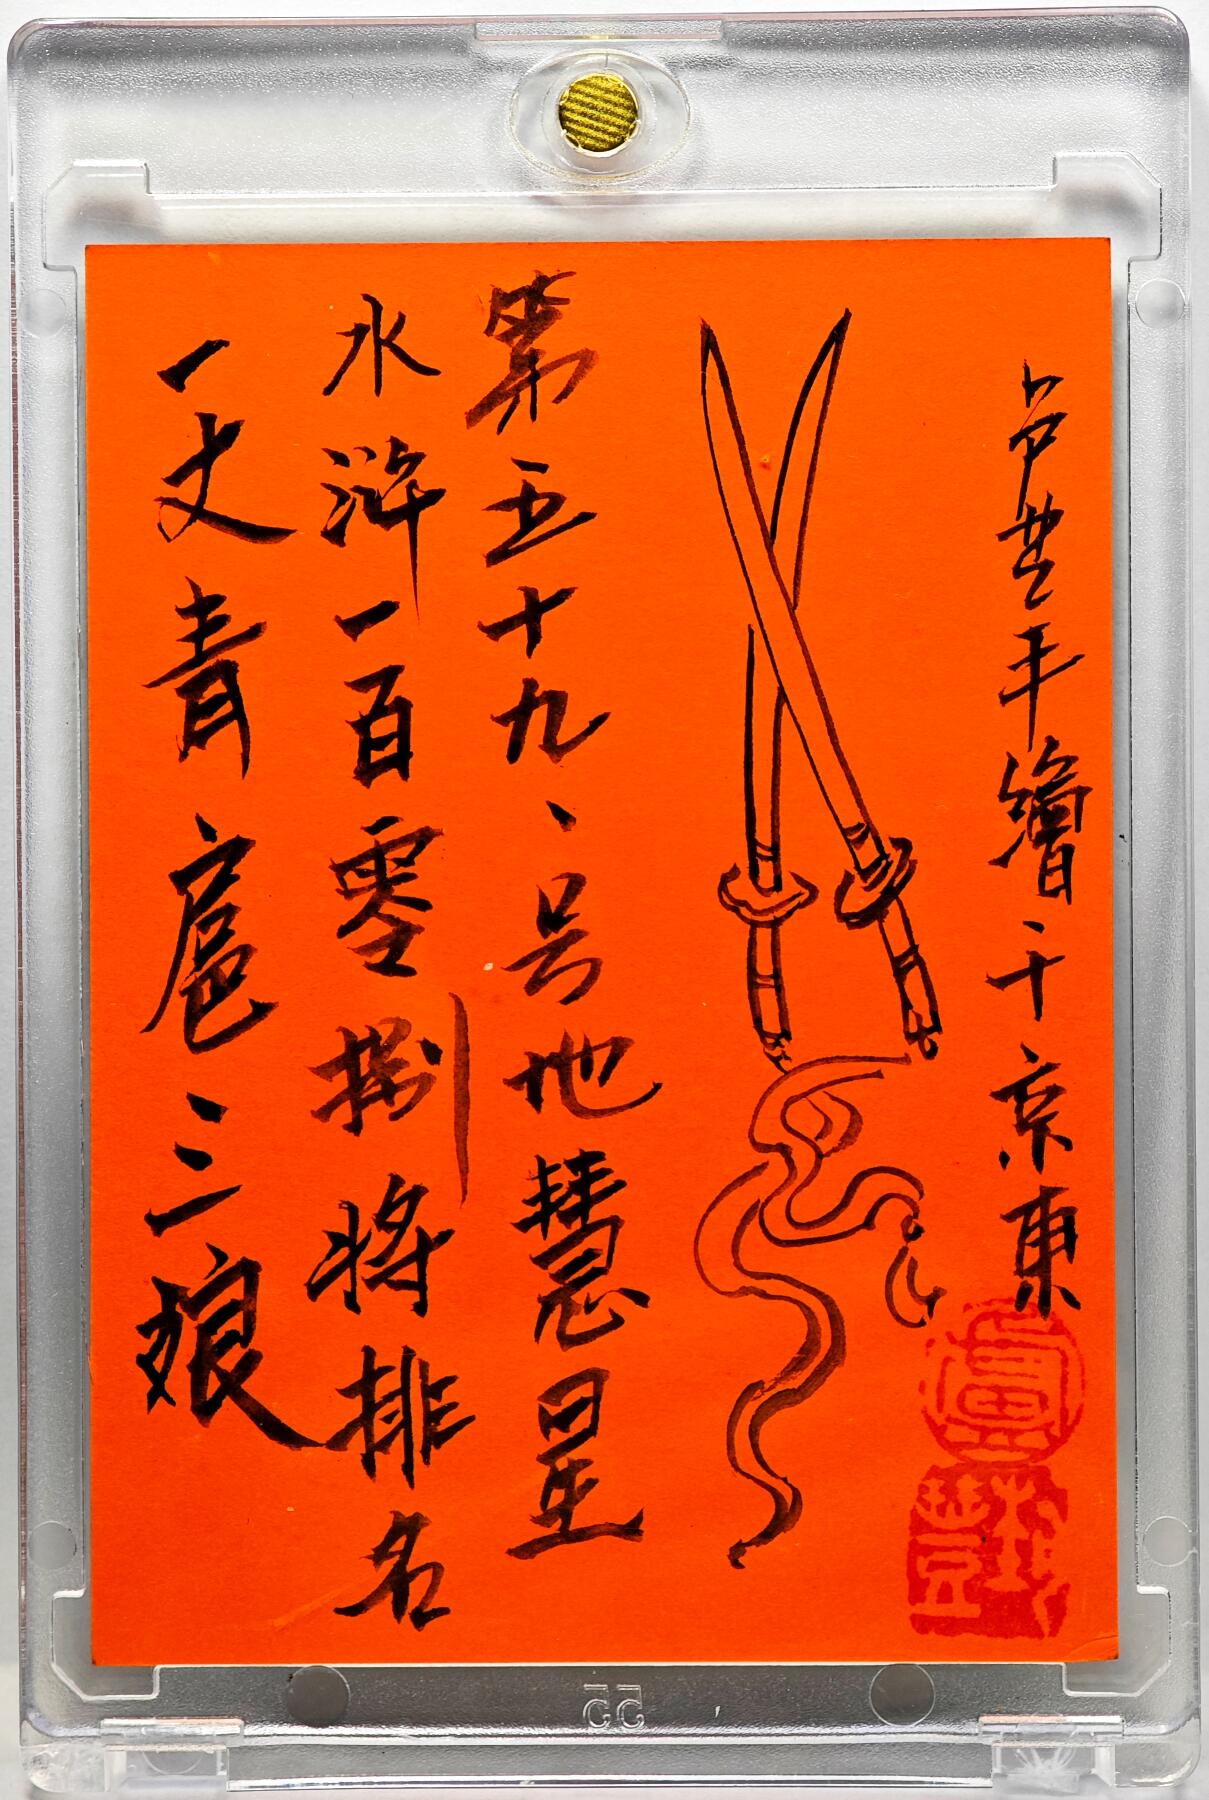 一丈青扈三娘
水浒一百零捌将排名
第五十九、号地慧星
卢丰繪于京東